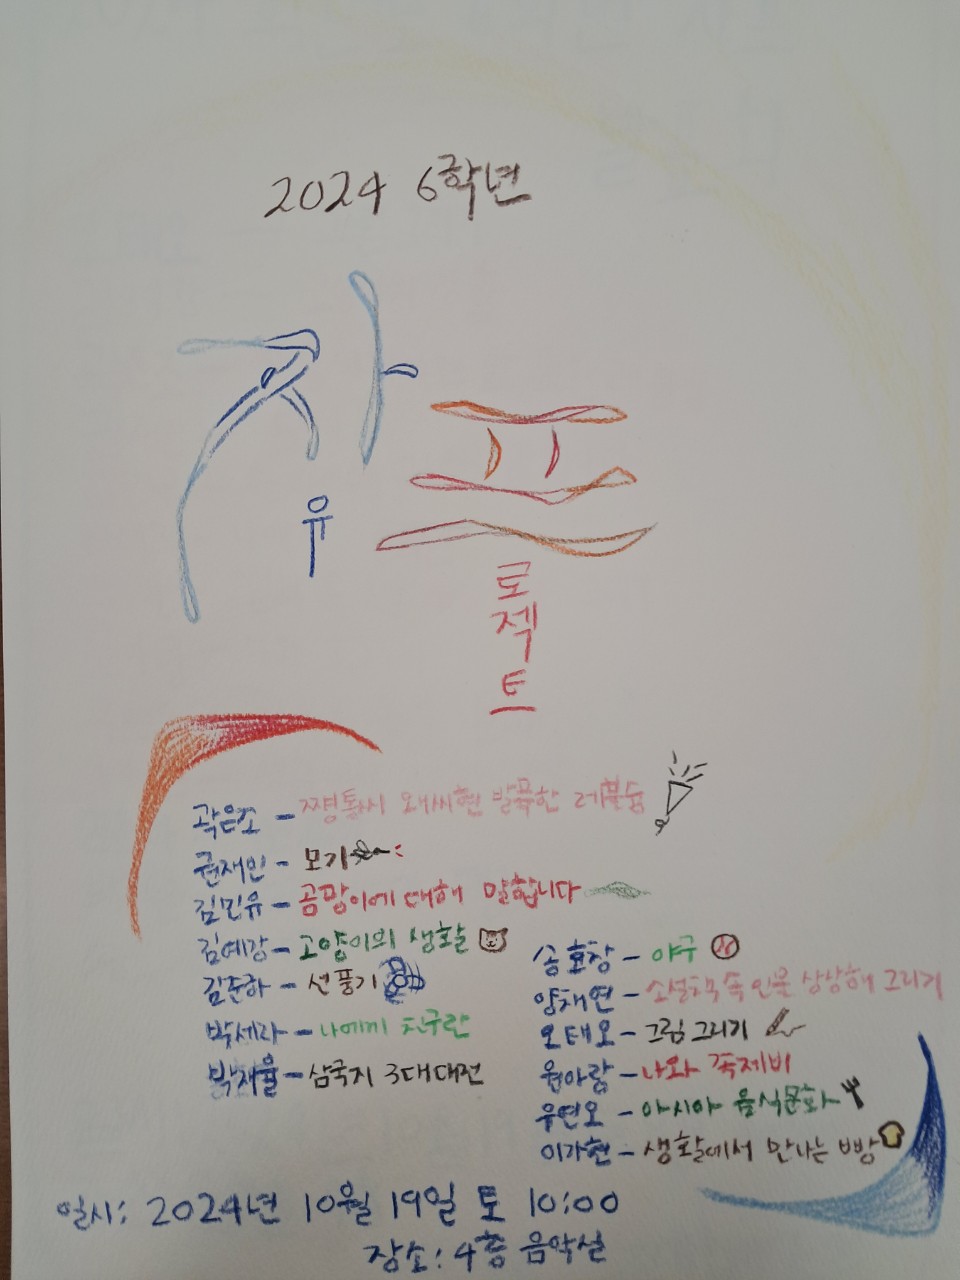 2024 6학년
자유
프로젝트
곽은조 - 쩡통씨 왜씨현 발푹한 레볼숍
권재인 - 모기
김민유 - 곰팡이에 대해 말합니다
김예강 - 고양이의 생활
김준하 - 선풍기
박세라 - 나에게 친구란
박재율 - 삼국지 3대대전
송호창 - 야구
양채연 - 소설책 속 인물 상상해 그리기
오태오 - 그림 그리기
원아랑 - 나와 족제비
우연오 - 아시아 음식문화
이가현 - 생활에서 만나는 빵
일시: 2024년 10월 19일 토 10:00
장소: 4층 음악실